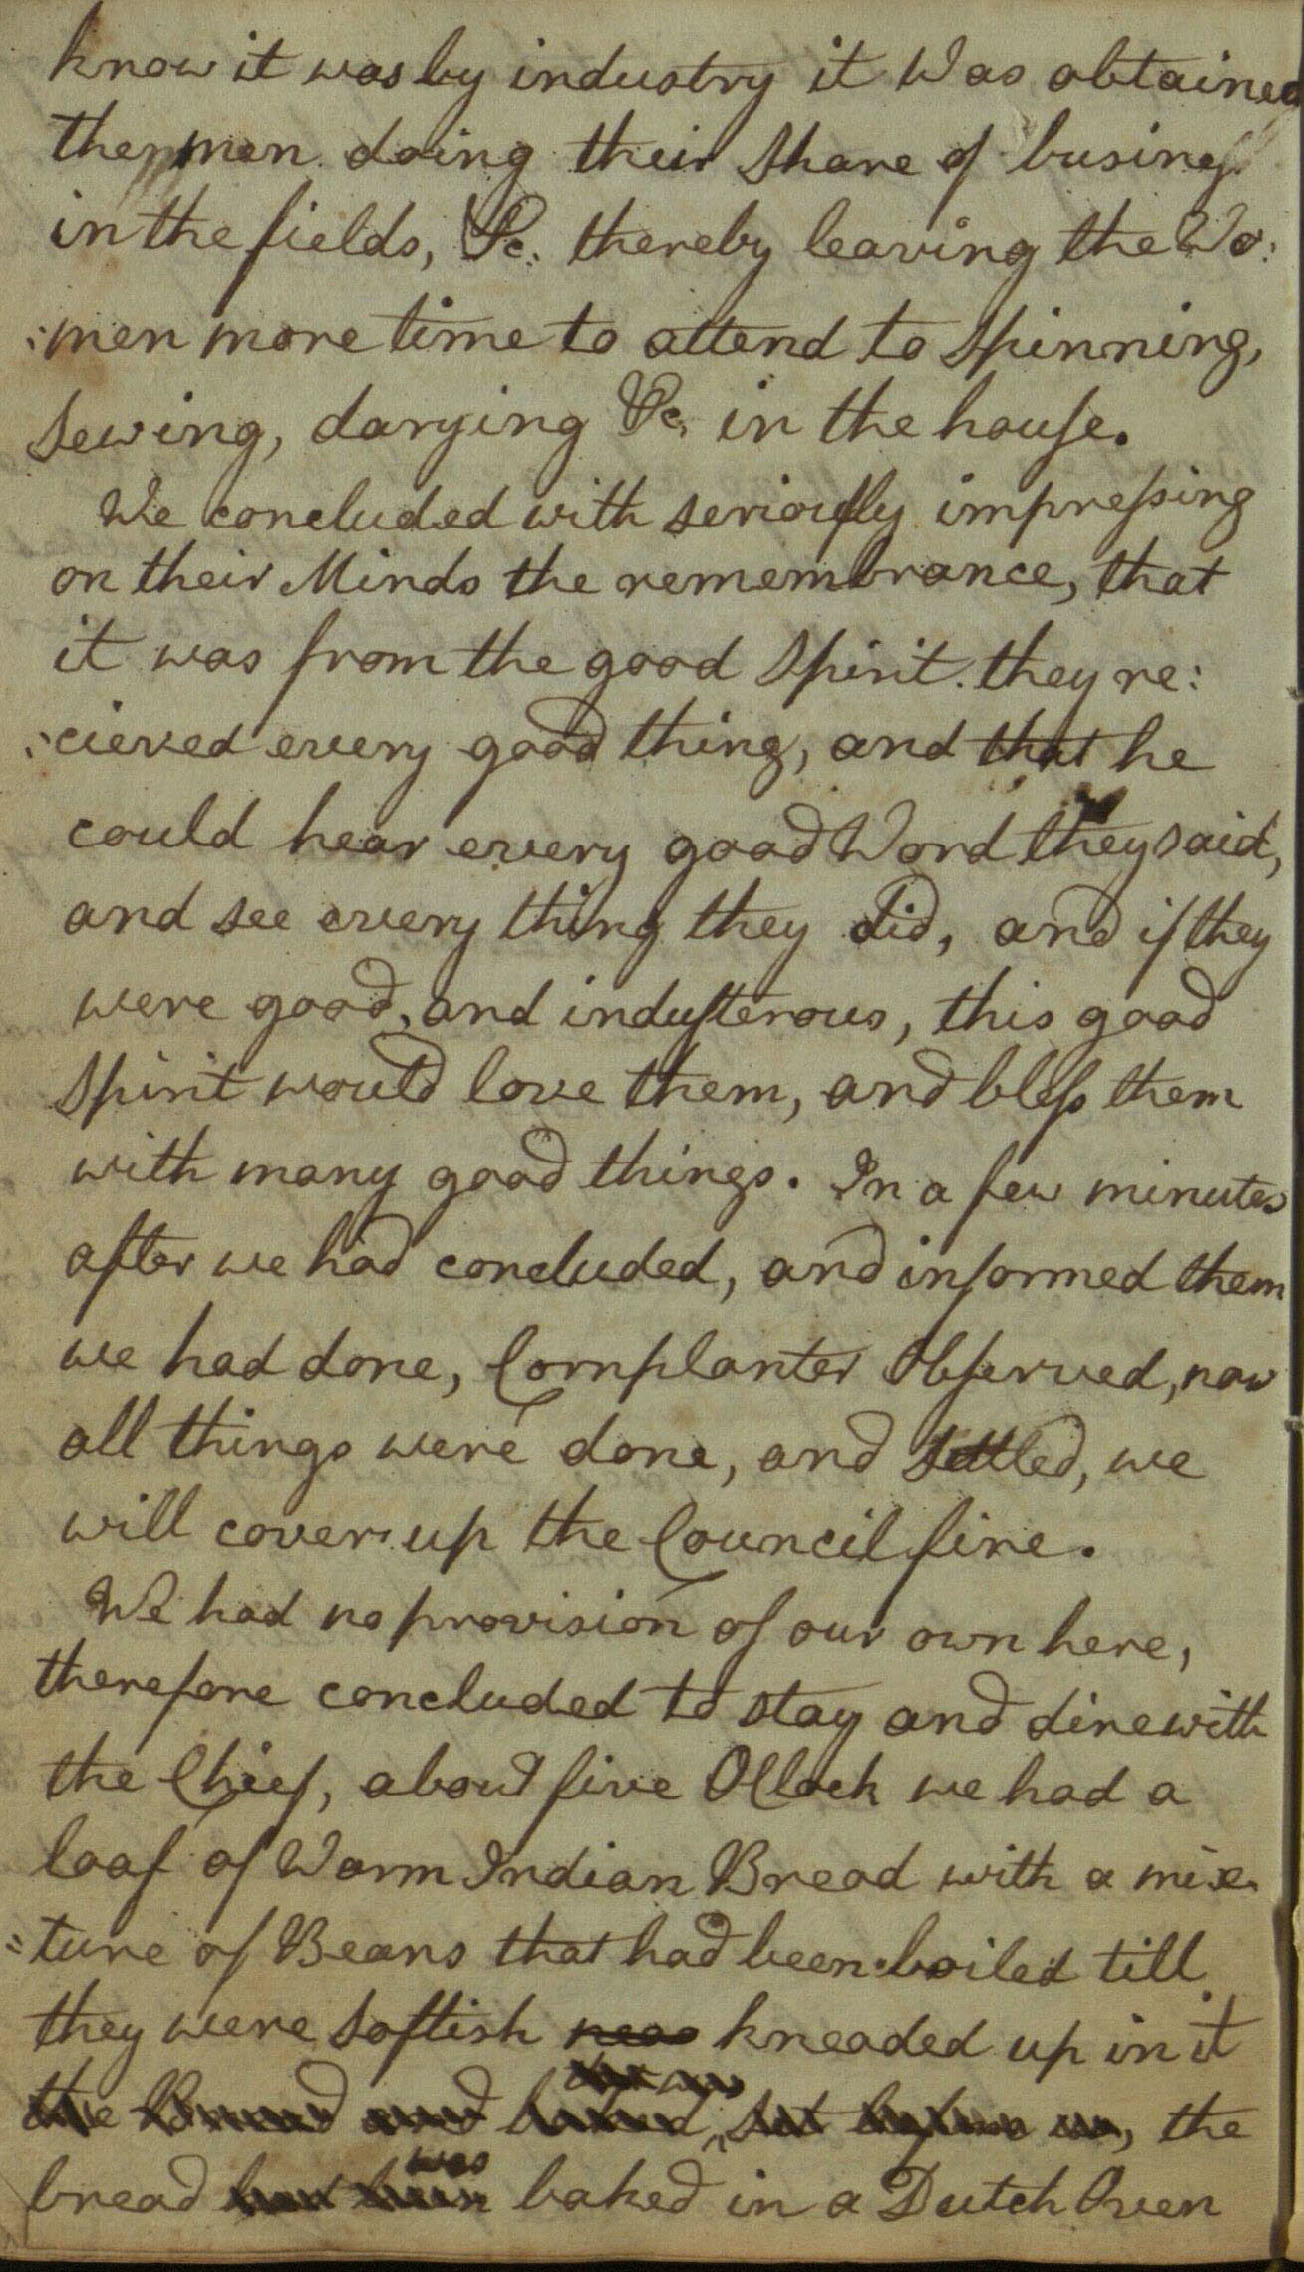 know it was by industry it Was obtained
the men doing their Share of business
in the fields, &c: thereby leaving the Wo:
:men more time to attend to Spinning,
Sewing, darying &c, in the house.
We concluded with seriously impressing
on their Minds the remembrance, that
it was from the good Spirit they re:
:cieved every good thing, and that he
could hear every good Word they said,
and see every thing they did, and if they
were good, and industerous, this good
Spirit would love them, and bless them
with many good things. In a few minutes
after we had concluded, and informed them
we had done, Cornplanter Observed, now
all things were done, and Settled, we
will cover up the Council fire.
We had no provision of our own here,
therefore concluded to stay and dine with
the Chief, about five OClock we had a
loaf of Warm Indian Bread with a mix
=ture of Beans that had been boiled till
they were Softish kneaded up in it
the Bread and baked, set before us, the
was
bread had been baked in a Dutch Oven